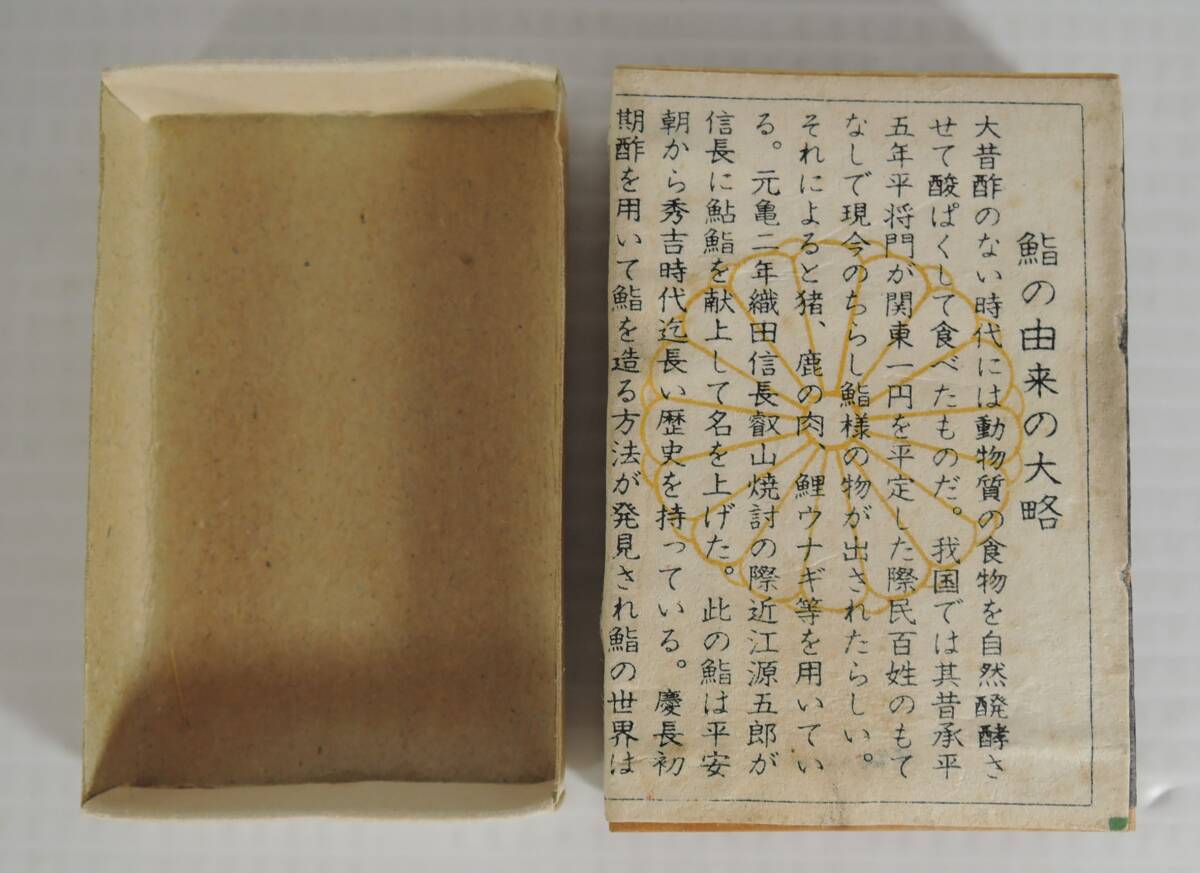 鮨の由来の大略
大昔酢のない時代には動物質の食物を自然醗酵さ
せて酸ぱくして食べたものだ。我国では其昔承平
五年平将門が関東一円を平定した際民百姓のもて
なしで現今のちらし鮨様の物が出されたらしい。
それによると猪、鹿の肉、鯉ウナギ等を用いてい
る。元亀二年織田信長叡山焼討の際近江源五郎が
信長に鮎鮨を献上して名を上げた。此の鮨は平安
朝から秀吉時代迄長い歴史を持っている。慶長初
期酢を用いて鮨を造る方法が発見され鮨の世界は